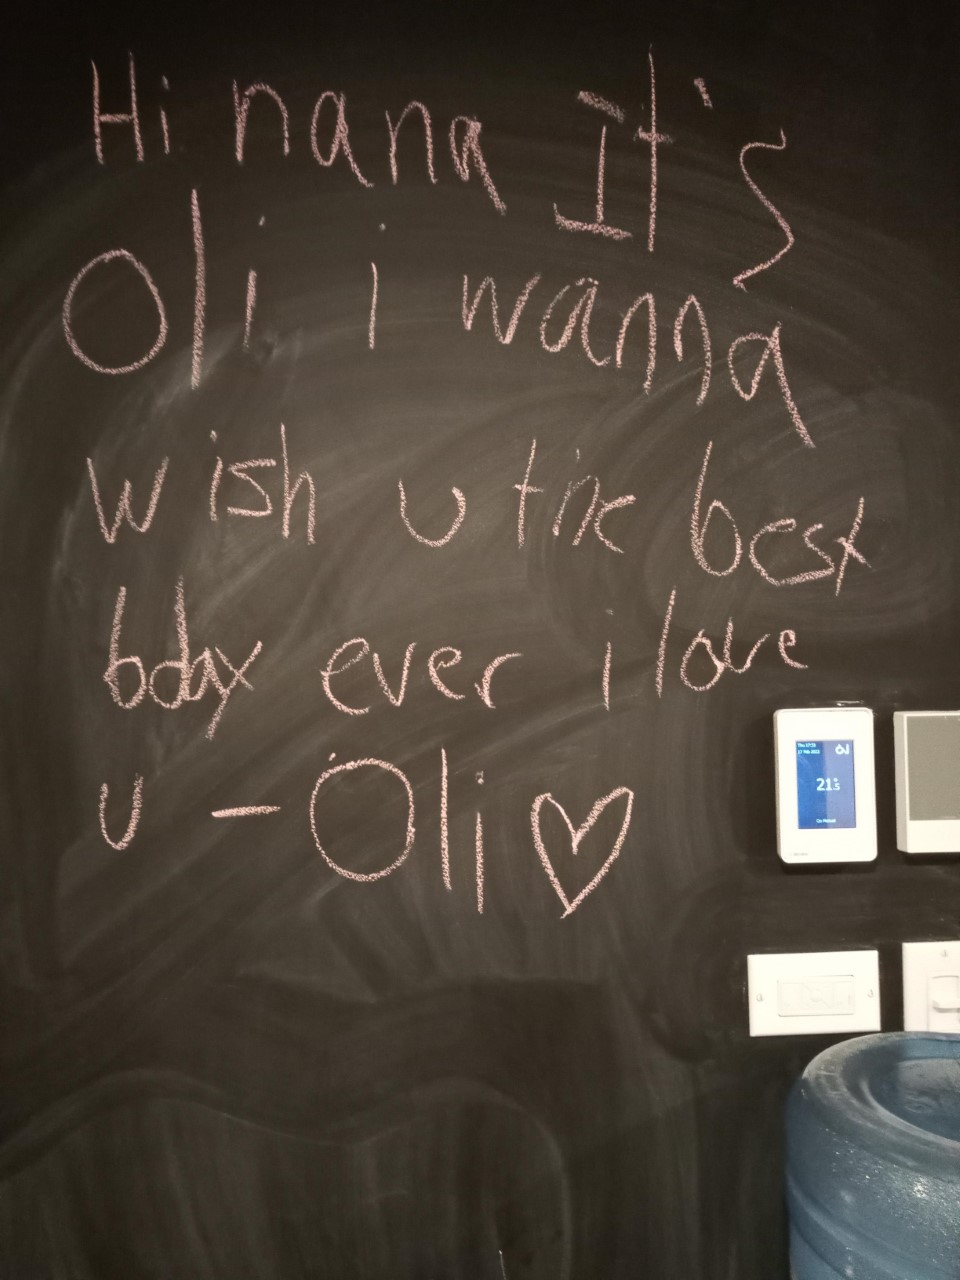 Hi nana It's
Oli i wanna
wish u the best
bday ever i love
u - Oli ♡
Thu 17:23
17 Feb 2022
21.5
On Manual